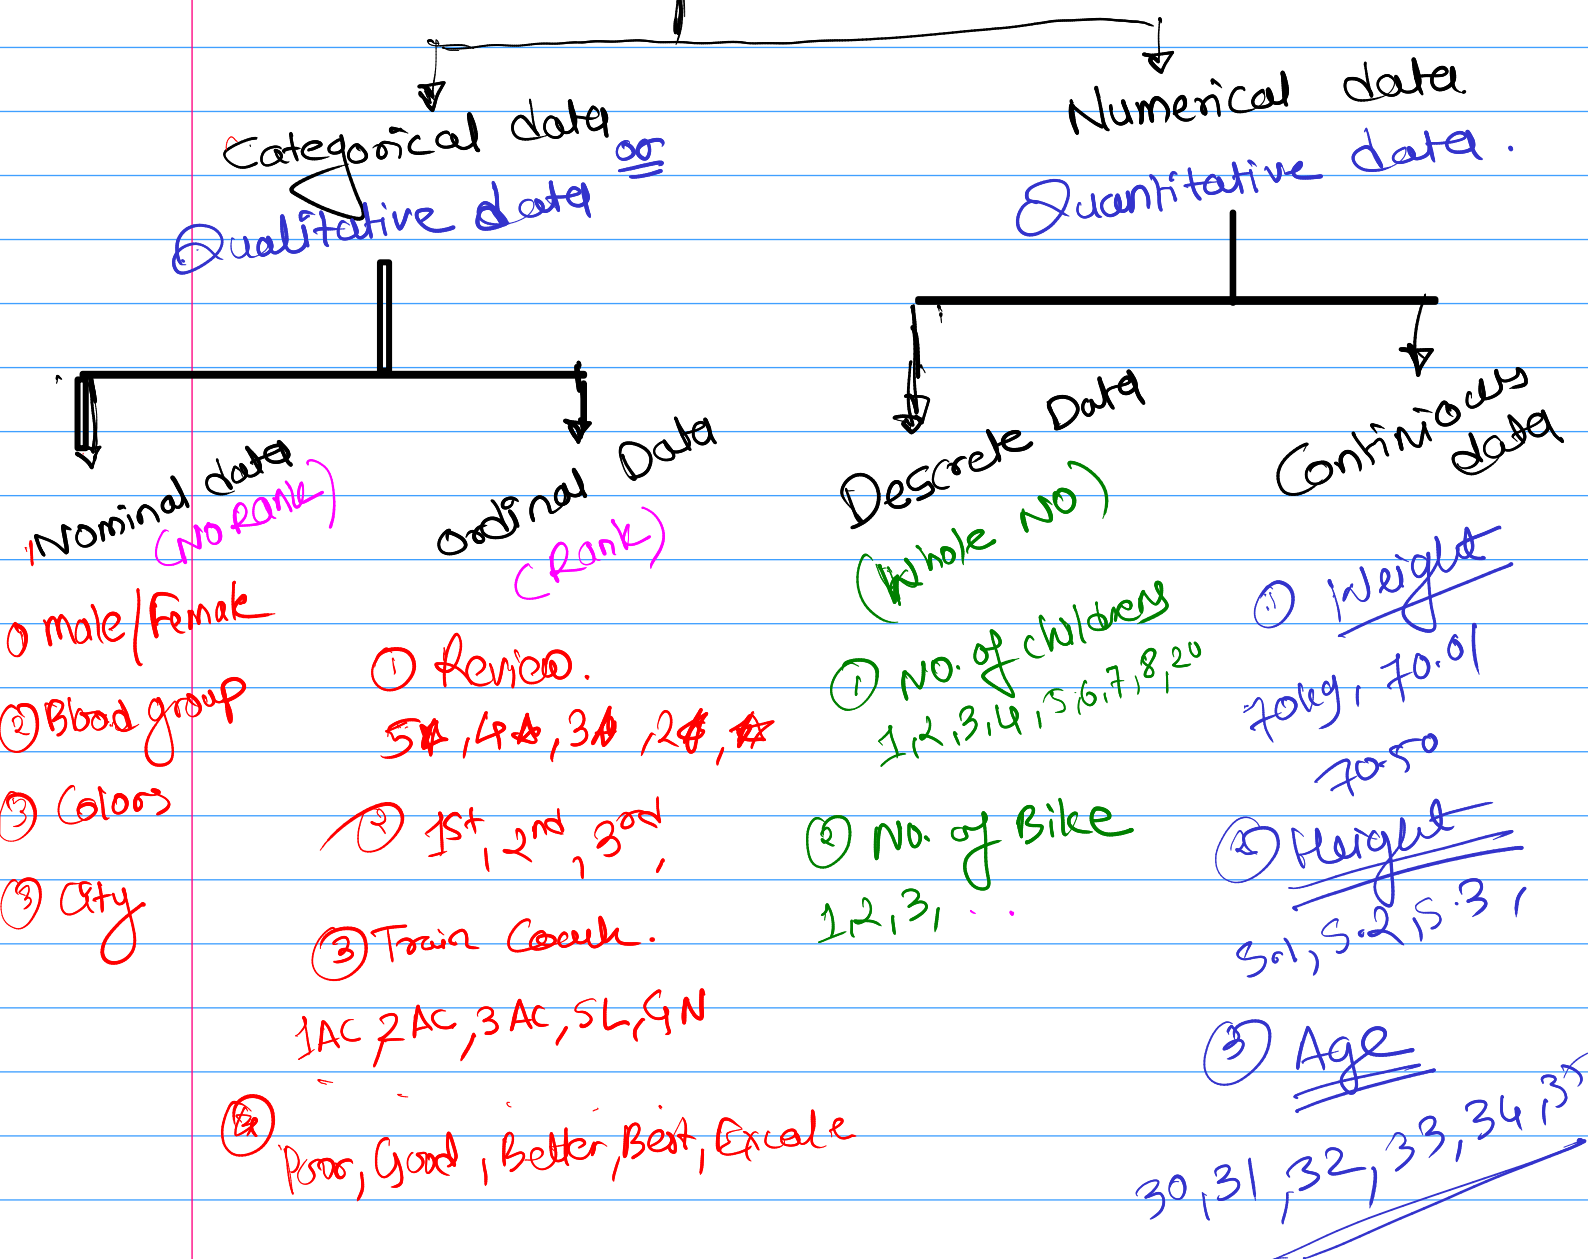 Categorical data
or
Qualitative data
Numerical data
Quantitative data.
Nominal data
(No Rank)
male/Female
② Blood group
③ Colors
③ City
ordinal Data
(Rank)
① Review.
5★, 4★, 3★, 2★, ★
② 1st, 2nd, 3rd,
③ Train Coach.
1AC, 2AC, 3AC, SL, GN
④
Poor, Good, Better, Best, Excele
Descrete Data
(Whole NO)
① NO. of childrens
1, 2, 3, 4, 5, 6, 7, 8, 20
② NO. of Bike
1, 2, 3, ..
Continious
data
① Weight
70kg, 70.01
70.50
② Height
5.1, 5.2, 5.3,
③ Age
30, 31, 32, 33, 34, 35